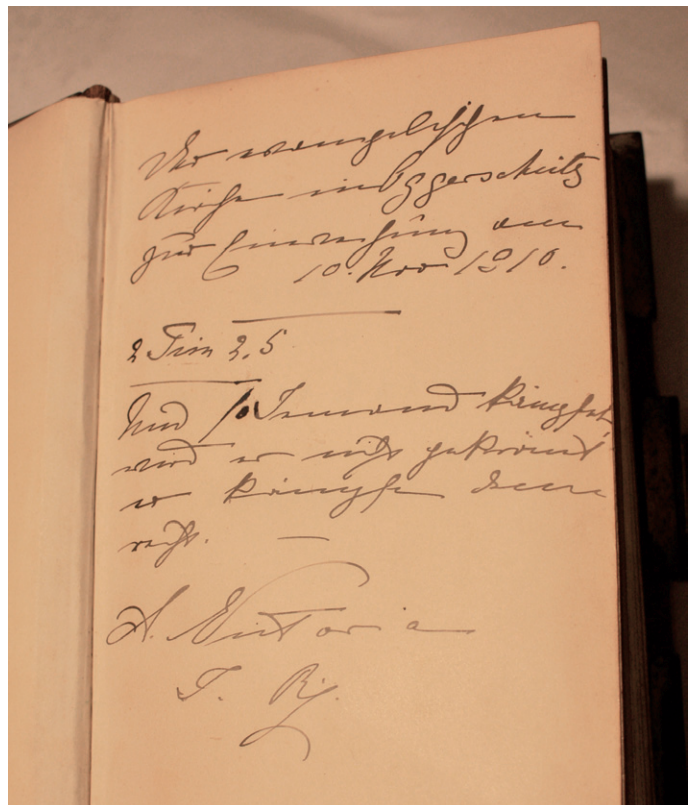 Der evangelischen
Kirche in Eggerscheidt
zur Einweihung am
10. Nov 1910.
2 Tim 2,5
Und so Jemand kämpfet,
wird er nicht gekrönt
er kämpfe denn
recht.
A. Victoria
I. R.